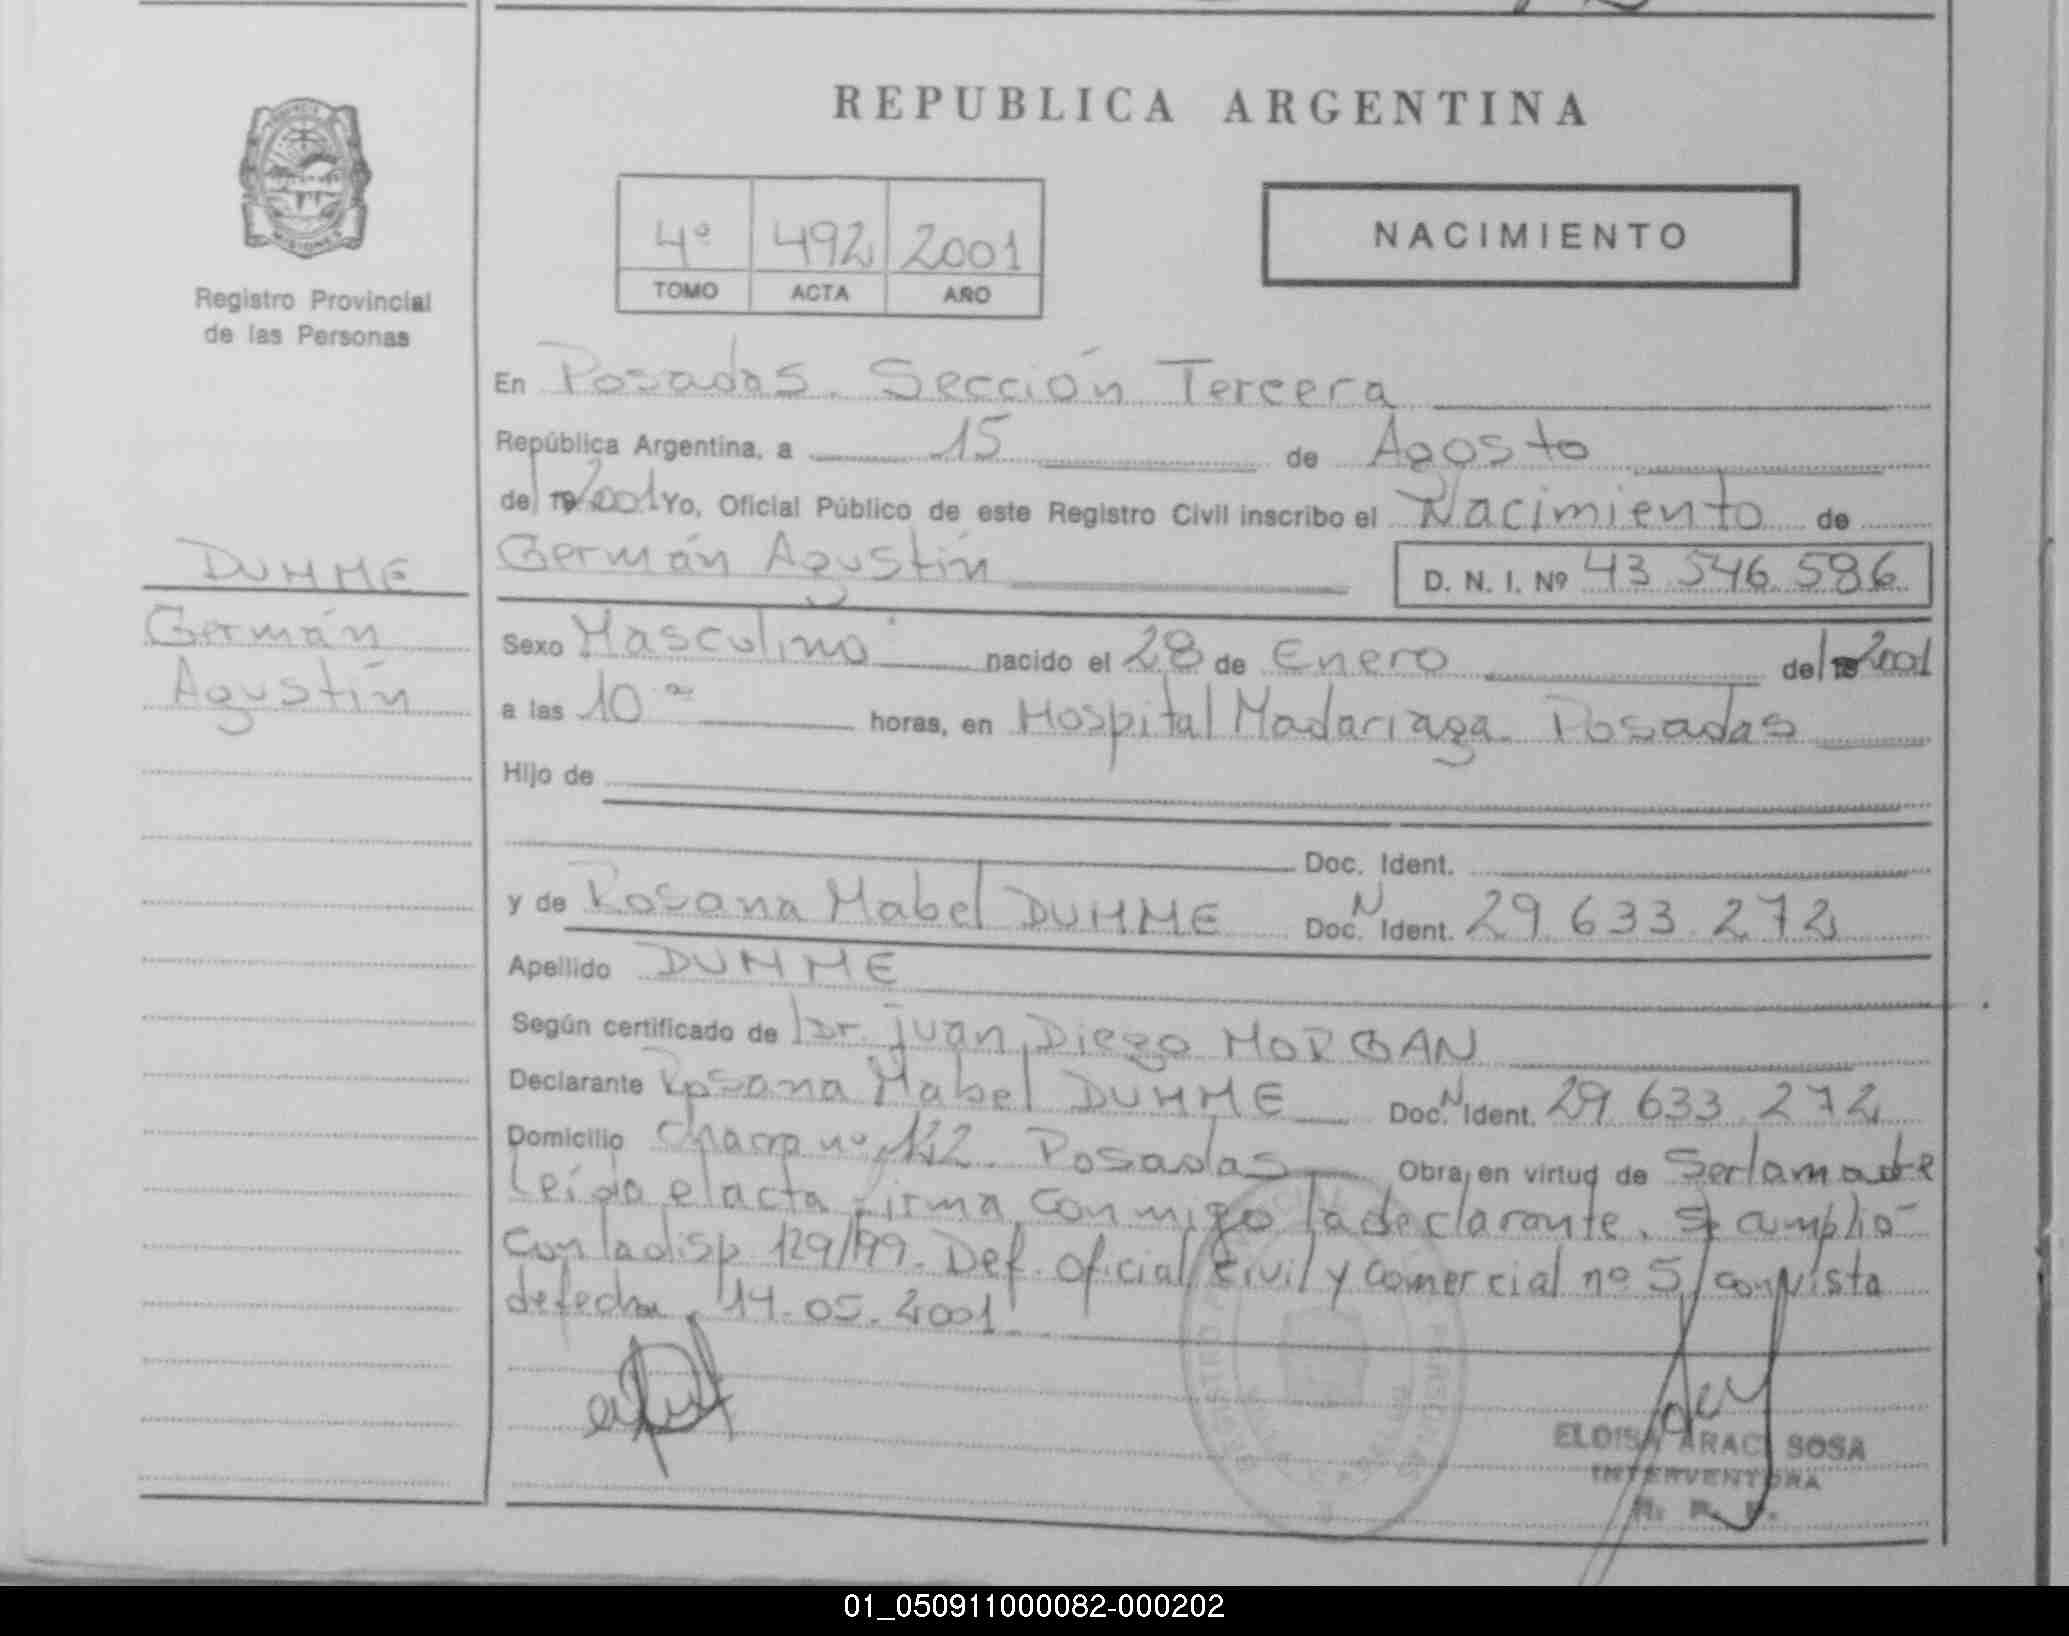 REPUBLICA ARGENTINA
4º 492 2001
TOMO ACTA AÑO
NACIMIENTO
Registro Provincial
de las Personas
En Posadas. Sección Tercera
República Argentina, a 15 de Agosto
de 19 2001 Yo, Oficial Público de este Registro Civil inscribo el Nacimiento de
Germán Agustín D. N. I. Nº 43.546.586
DUHME
Germán
Agustín
Sexo Masculino nacido el 28 de Enero de 19 2001
a las 10 horas, en Hospital Madariaga. Posadas
Hijo de
Doc. Ident.
y de Rosana Mabel DUHME Doc. N Ident. 29.633.272
Apellido DUHME
Según certificado de Dr. Juan Diego MORGAN
Declarante Rosana Mabel DUHME Doc. N Ident. 29.633.272
Domicilio Chacra nº 122. Posadas Obra en virtud de Ser la madre
Leída el acta firma conmigo la declarante. Se cumplió
con la disp 129/99. Def. Oficial Civil y Comercial nº 5, con vista
de fecha 14.05.2001
ELOISA ARACI SOSA
INTERVENTORA
01_050911000082-000202